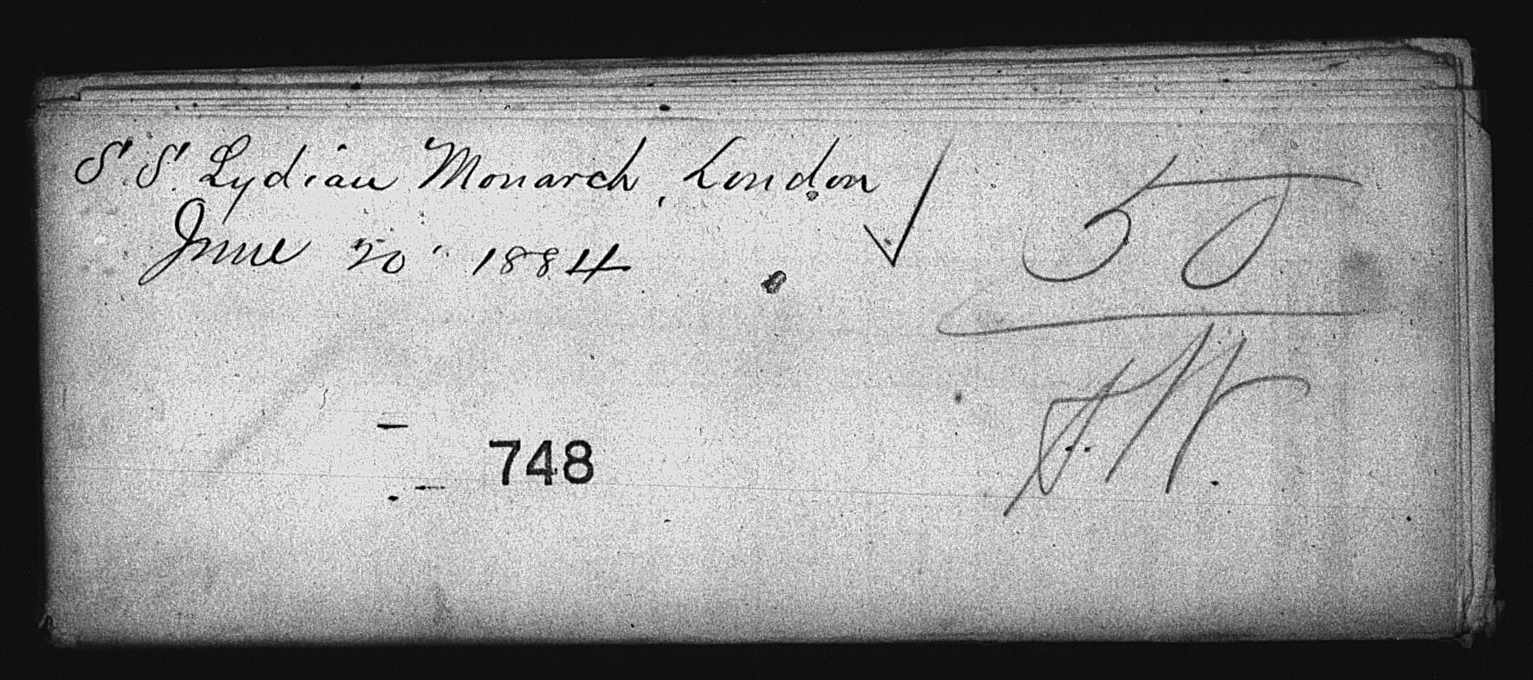 S. S. Lydian Monarch, London ✓
June 20' 1884
50
748